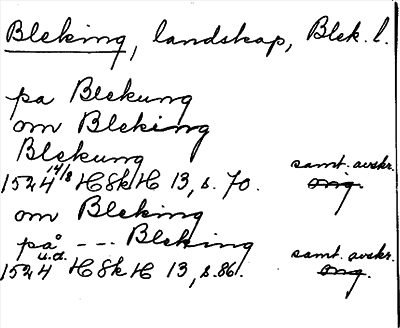 Bleking, landskap, Blek. l.
pa Blekung
om Bleking
Blekung
1524 14/8 HSkH 13, s. 70. samt. avskr. orig.
om Bleking
på --- Bleking
1524 u.d. HSkH 13, s. 86. samt. avskr. orig.